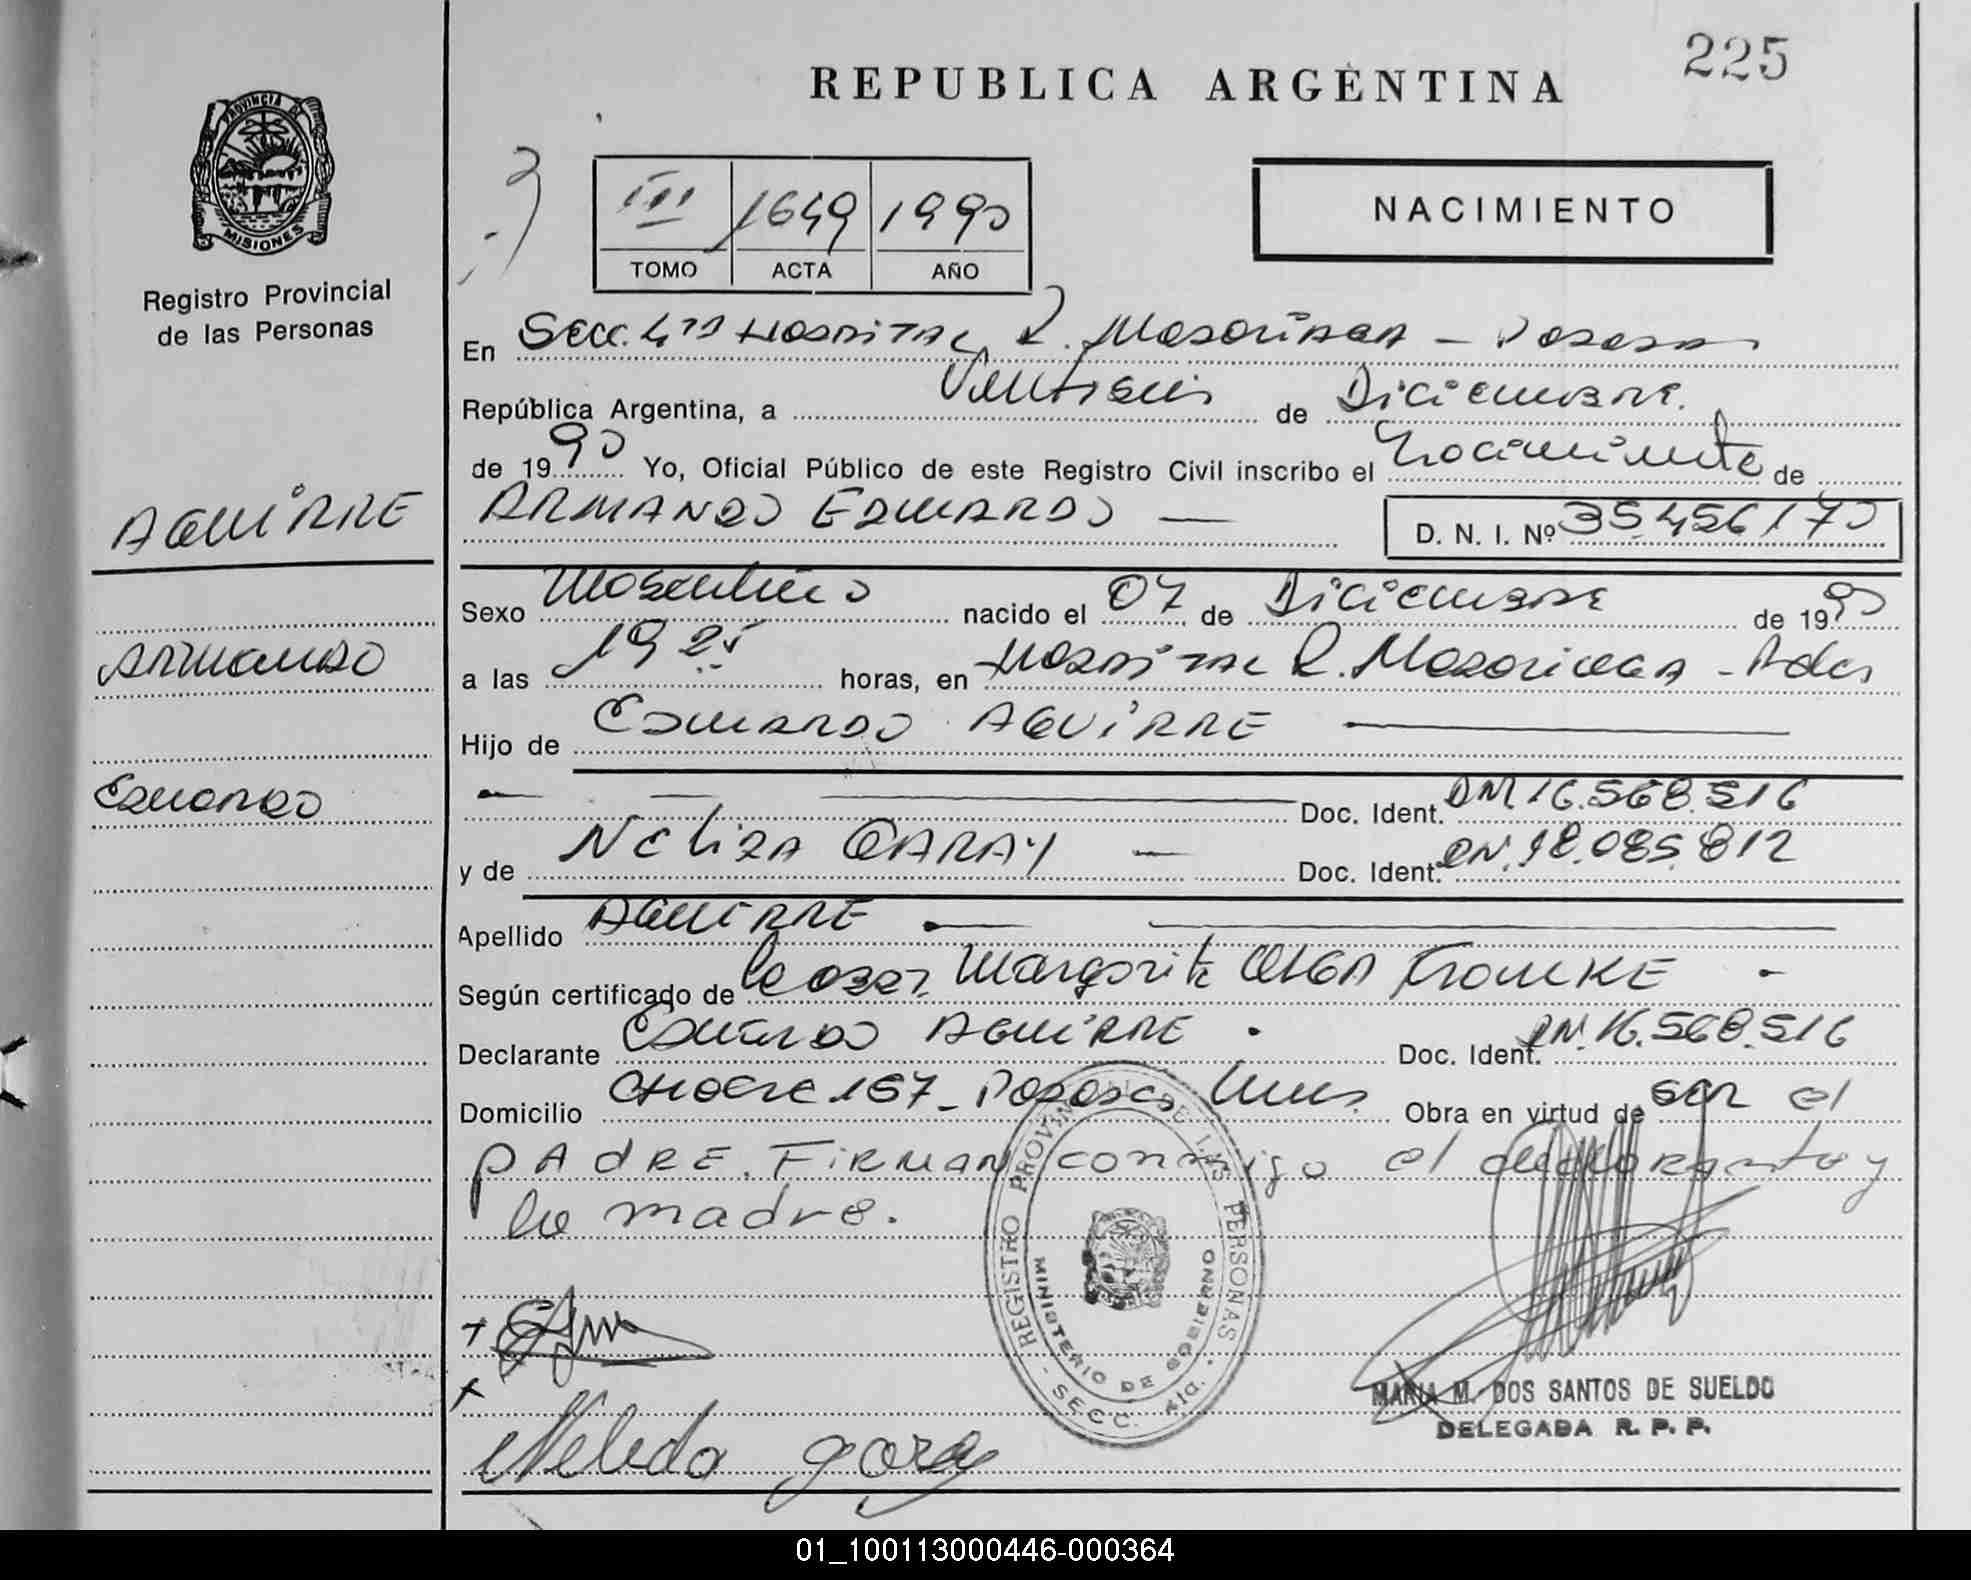 225
REPUBLICA ARGENTINA
PROVINCIA DE
MISIONES
Registro Provincial
de las Personas
III 1649 1990
TOMO ACTA AÑO
NACIMIENTO
En Secc. 4ta Hospital R. Madariaga - Posadas
República Argentina, a Veintiseis de Diciembre
de 1990 Yo, Oficial Público de este Registro Civil inscribo el Nacimiento de
AGUIRRE
ARMANDO EDUARDO — D. N. I. Nº 35.456.170
Sexo Masculino nacido el 07 de Diciembre de 1990
Armando
a las 19 25 horas, en Hospital R. Madariaga - Pdas
Hijo de Eduardo AGUIRRE —
Eduardo
Doc. Ident. DNI 16.568.516
y de Nelida GARAY — Doc. Ident. DN. 18.085.812
Apellido AGUIRRE —
Según certificado de Margarita OLGA
Declarante Eduardo AGUIRRE . Doc. Ident. DN. 16.568.516
Domicilio 157 - Posadas Mnes. Obra en virtud de ser el
PADRE. FIRMAN conmigo el declarante y
la madre.
REGISTRO PROVINCIAL DE LAS PERSONAS
MINISTERIO DE GOBIERNO
- SECC. 4ta. -
Nelida garay
MARIA M. DOS SANTOS DE SUELDO
DELEGADA R. P. P.
01_100113000446-000364